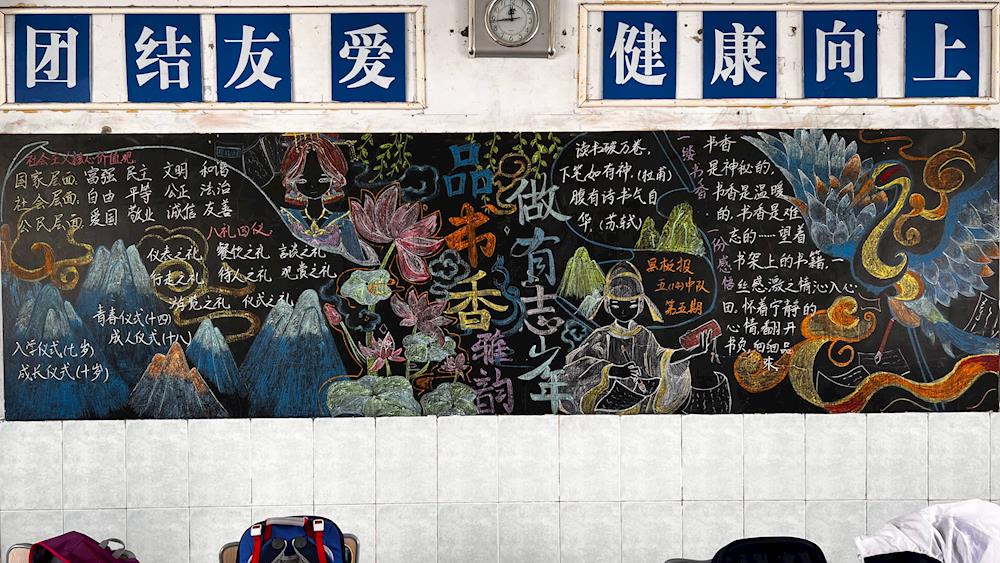 团结友爱
健康向上
社会主义核心价值观
国家层面:富强 民主 文明 和谐
社会层面:自由 平等 公正 法治
公民层面:爱国 敬业 诚信 友善
八礼四仪
仪态之礼 餐饮之礼 言谈之礼
行走之礼 待人之礼 观赏之礼
游览之礼 仪式之礼
青春仪式(十四)
成人仪式(十八)
入学仪式(七岁)
成长仪式(十岁)
品书香雅韵
做有志少年
读书破万卷,
下笔如有神.(杜甫)
腹有诗书气自
华.(苏轼)
黑板报
五(14)中队
第五期
一缕书香
一份感悟
书香
是神秘的,
书香是温暖
的,书香是难
忘的……望着
书架上的书籍,一
丝感激之情沁入心
田,怀着宁静的
心情,翻开
书页,细细品
味